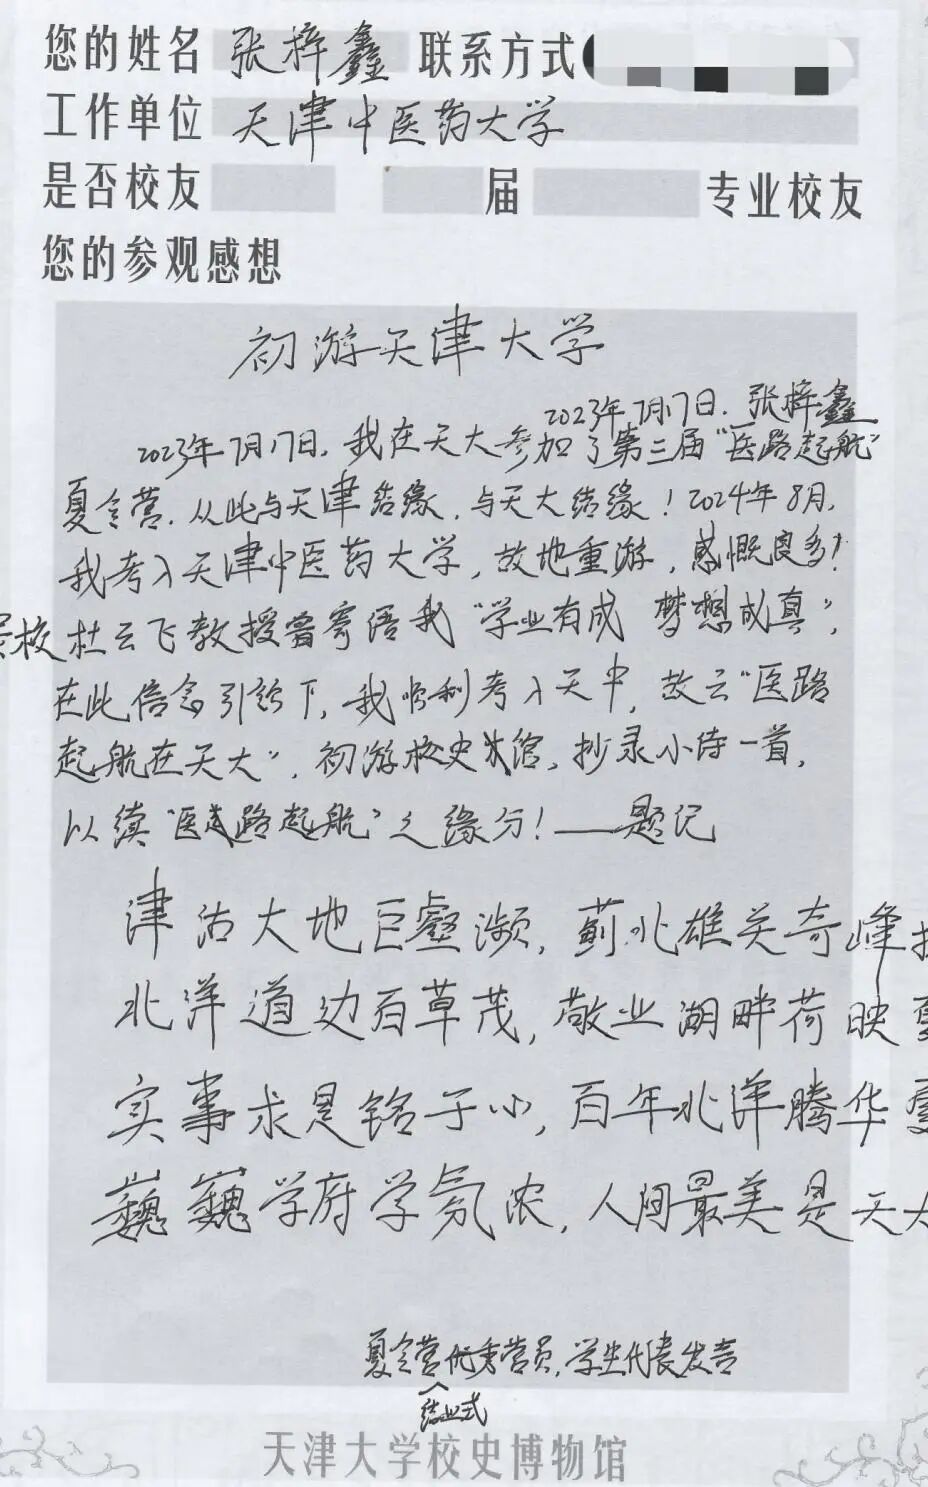 您的姓名 张梓鑫 联系方式
工作单位 天津中医药大学
是否校友 届 专业校友
您的参观感想
初游天津大学
2023年7月17日. 张梓鑫
2023年7月17日,我在天大参加了第三届“医路起航”
夏令营.从此与天津结缘,与天大结缘!2024年8月,
我考入天津中医药大学,故地重游,感慨良多!
校杜云飞教授曾寄语我“学业有成 梦想成真”,
在此信念引领下,我顺利考入天中,故云“医路
起航在天大”,初游校史馆,抄录小诗一首,
以续“医路起航”之缘分!——题记
津沽大地巨壑濒,蓟北雄关奇峰
北洋道边百草茂,敬业湖畔荷映
实事求是铭于心,百年北洋腾华
巍巍学府学氛浓,人间最美是天大
夏令营优秀营员,学生代表发言
结业式
天津大学校史博物馆